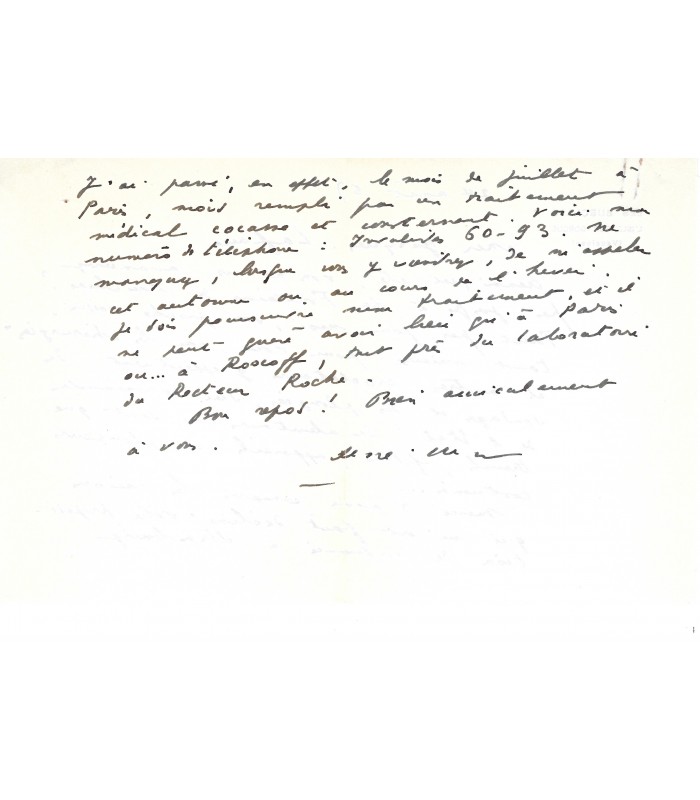 J'ai passé, en effet, le mois de juillet à
Paris, mois rempli par un traitement
médical cocasse et consternant. Voici mon
numéro de téléphone : Invalides 60-93. Ne
manquez, lorsque vous y viendrez, de m'appeler
cet automne ou au cours de l'hiver.
Je dois poursuivre mon traitement, et il
ne peut guère avoir lieu qu'à Paris
ou... à Roscoff, tout près du laboratoire
du Recteur Roche.
Bon repos ! Bien amicalement
à vous.